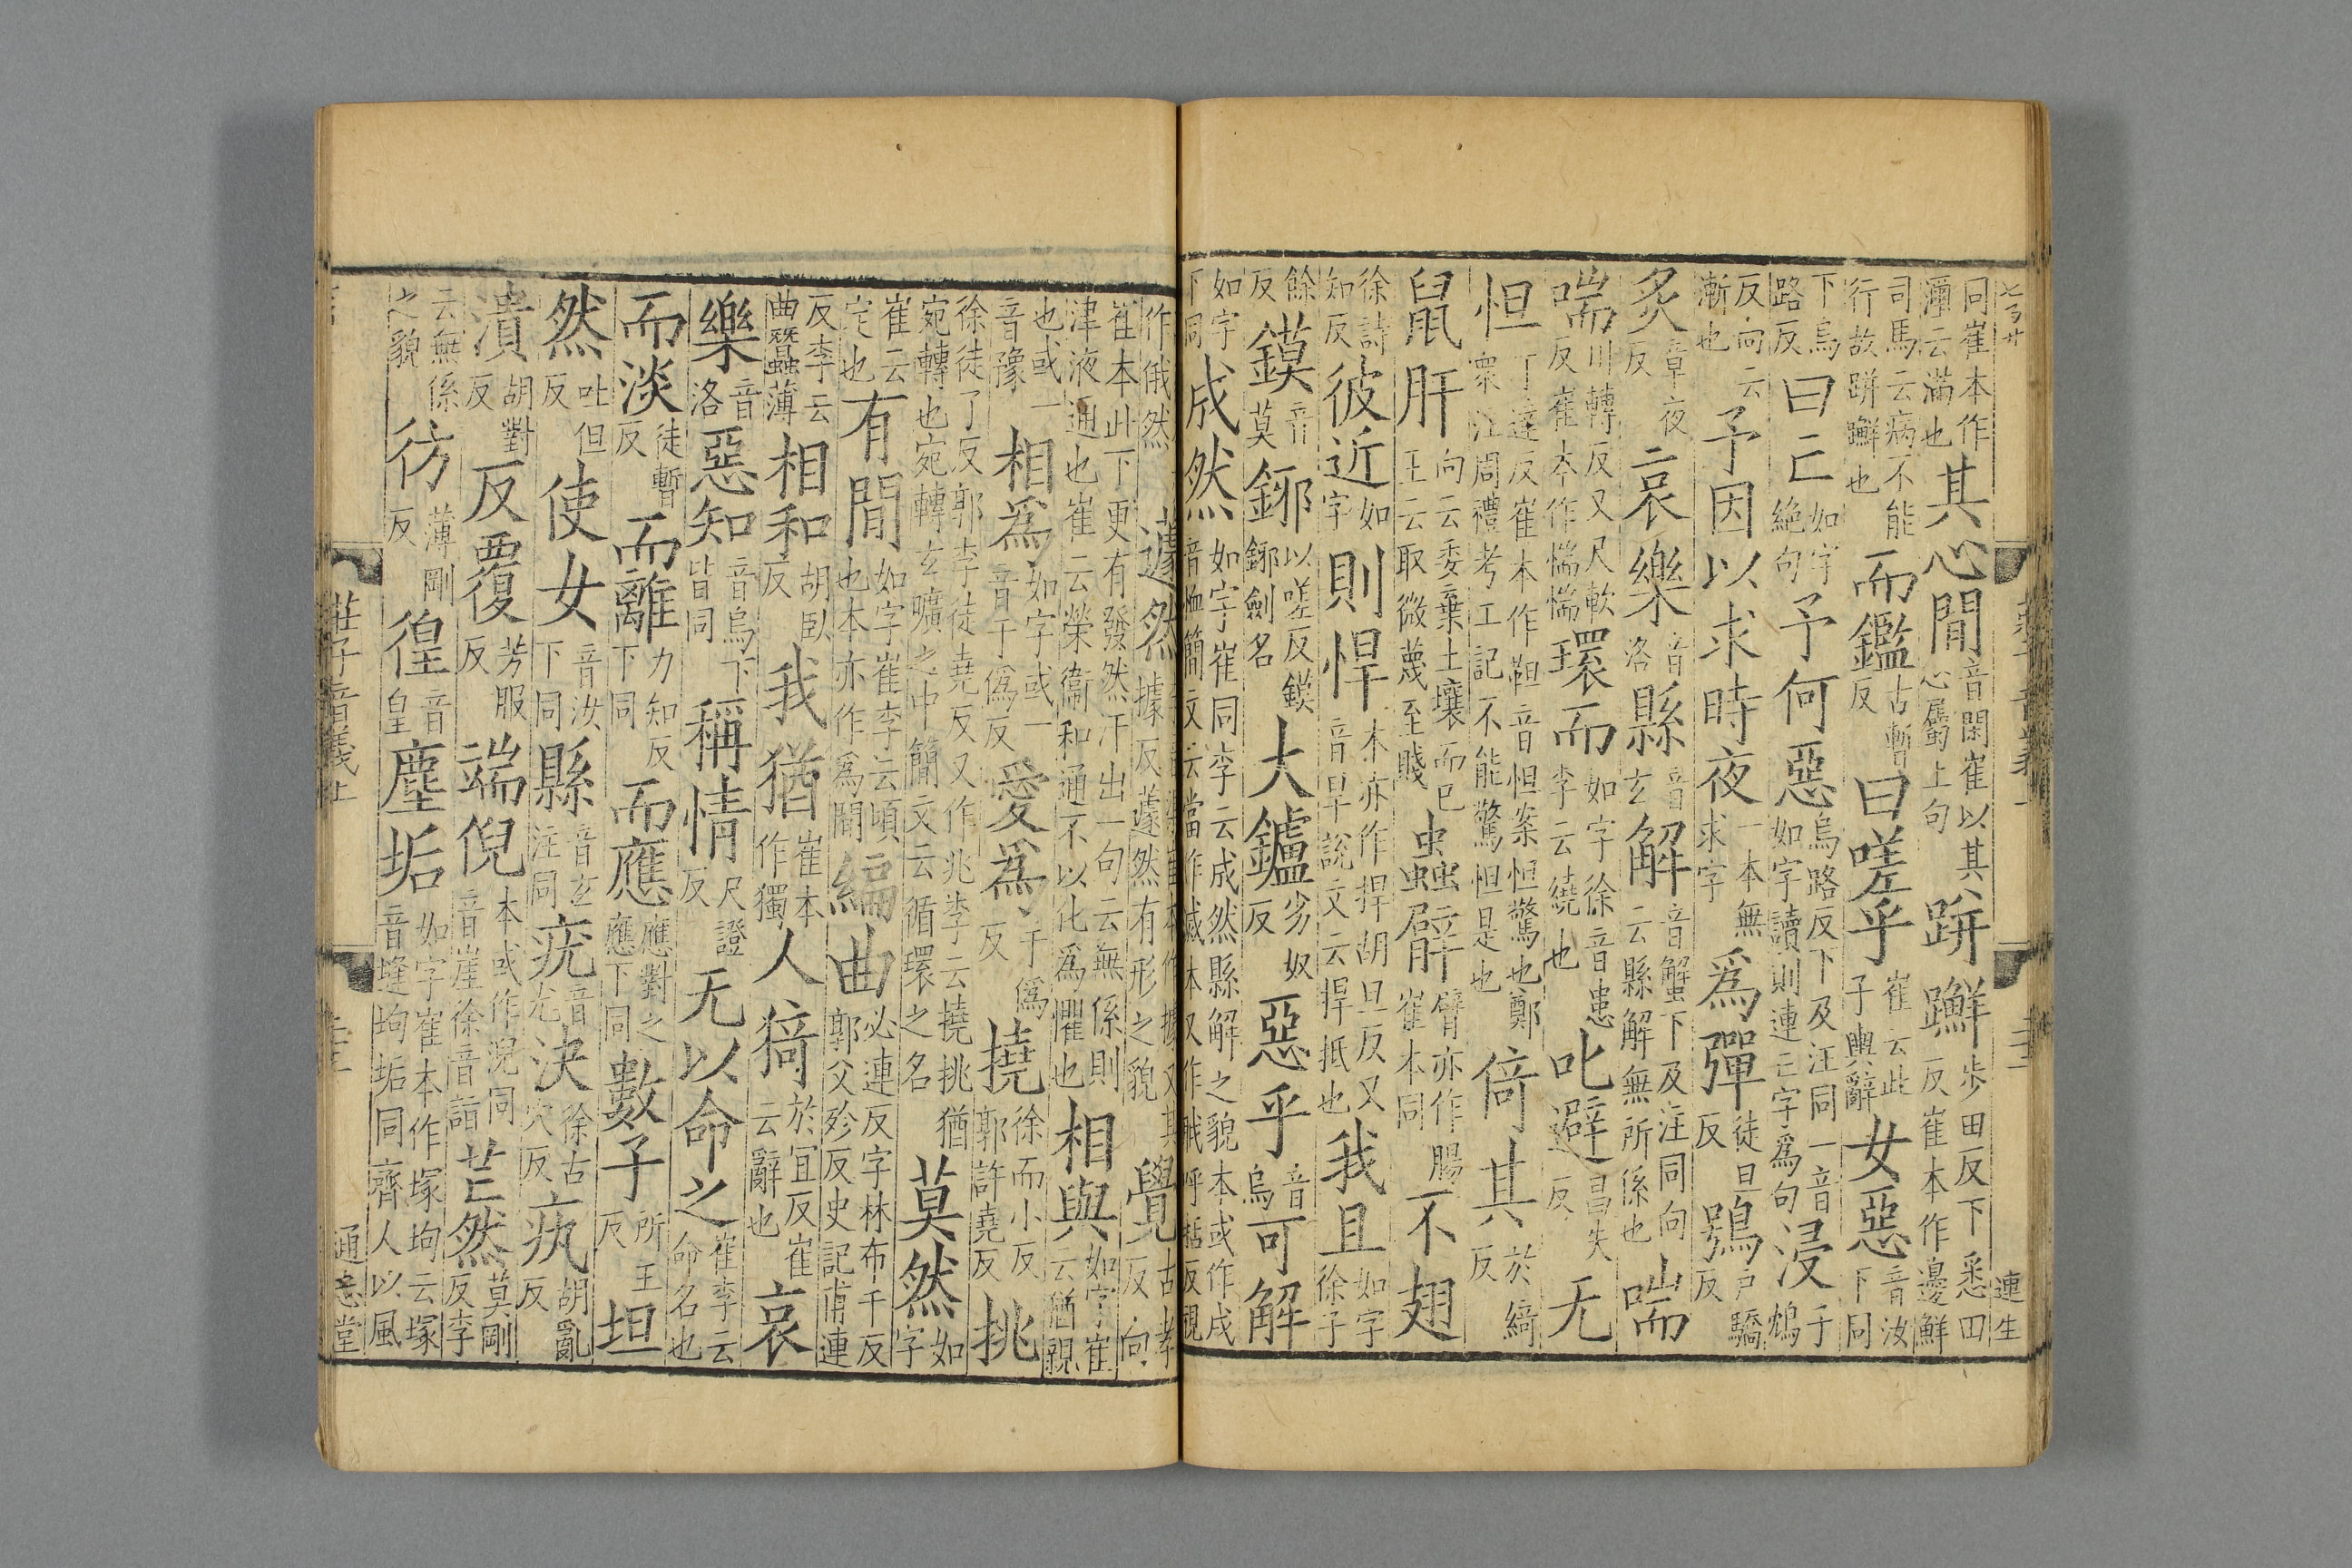 同崔本作瀰云滿也其心閒音閑崔以其心屬上句跰𨇤步田反下悉田反崔本作邊鮮
司馬云病不能行故跰𨇤也而鑑古暫反曰嗟乎崔云此子輿辭女惡音汝下同
下烏路反曰亡如字絶句予何惡烏路反下及注同一音如字讀則連亡字爲句浸子鴆
反向云漸也予因以求時夜一本無求字爲彈徒旦反鴞戶驕反
炙章夜反哀樂音洛縣音玄解音蟹下及注同向云縣解無所係也喘
喘川轉反又尺軟反崔本作惴惴環而如字徐音患李云繞也叱避昌失反无
怛丁達反崔本作靼音怛案怛驚也鄭衆注周禮考工記不能驚怛是也倚其於綺反
鼠肝向云委棄土壤而已王云取微蔑至賤蟲臂臂亦作腸崔本同不翅
徐詩知反彼近如字則悍本亦作捍胡旦反又音旱說文云捍抵也我且如字徐子
餘反鏌音莫鋣以嗟反鏌鋣劍名大鑪劣奴反惡乎音烏可解
如字下同成然如字崔同李云成然縣解之貌本或作戌音恤簡文云當作滅本又作𣧑呼括反視
作俄然蘧然據反蘧然有形之貌覺古孝反向
崔本此下更有發然汗出一句云無係則津液通也崔云榮衞和通不以化爲懼也相與如字崔云猶親
也或一音豫相爲如字或一音于僞反愛爲于僞反撓徐而小反郭許堯反挑
徐徒了反郭李徒堯反又作兆李云撓挑猶宛轉也宛轉玄曠之中簡文云循環之名莫然如字
崔云定也有閒如字崔李云頃也本亦作爲閒編曲必連反字林布千反郭父殄反史記甫連
反李云曲蠶薄相和胡臥反我猶崔本作獨人猗於宜反崔云辭也哀
樂音洛惡知音烏下皆同稱情尺證反无以命之崔李云命名也
而淡徒暫反而離力知反下同而應應對之應下同數子所主反坦
然吐但反使女音汝下同縣音玄注同疣音尤決徐古穴反疻胡亂反
潰胡對反反覆芳服反端倪本或作淣同音崖徐音詣芒然莫剛反李
云無係之貌彷薄剛反徨音皇塵垢如字崔本作塚坸云塚音塳坸垢同齊人以風
莊子音義上
通志堂